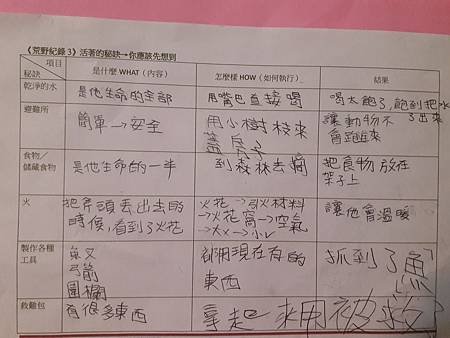 《荒野紀錄 3》活著的秘訣→你應該先想到
項目
秘訣
是什麼 WHAT（內容）
怎麼樣 HOW（如何執行）
結果
乾淨的水
是他生命的全部
用嘴巴直接喝
喝太飽了，飽到把水
了出來
避難所
簡單→安全
用小樹枝來
蓋房子
讓動物不
會跑進來
食物／
儲藏食物
是他生命的一半
到森林去摘
把食物放在
架子上
火
把斧頭丟出去的
時候，看到了火花
火花→引火材料
→火花窩→空氣
→大火→小火
讓他會溫暖
製作各種
工具
魚叉
弓箭
圍欄
都用現在有的
東西
抓到了魚
救難包
有很多東西
拿起來用
被救